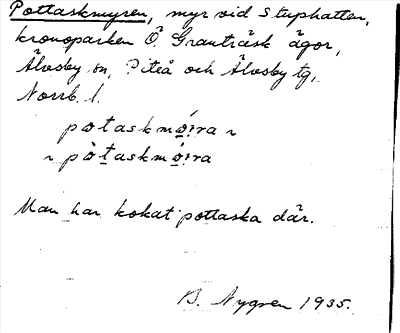 Pottaskmyren, myr vid Stuphatten,
kronoparken Ö. Granträsk ägor,
Älvsby sn, Piteå och Älvsby tg,
Norrb. l.
potaskmó̱ira ~
~ pòt̲askmó̱ira
Man har kokat pottaska där.
B. Nygren 1935.